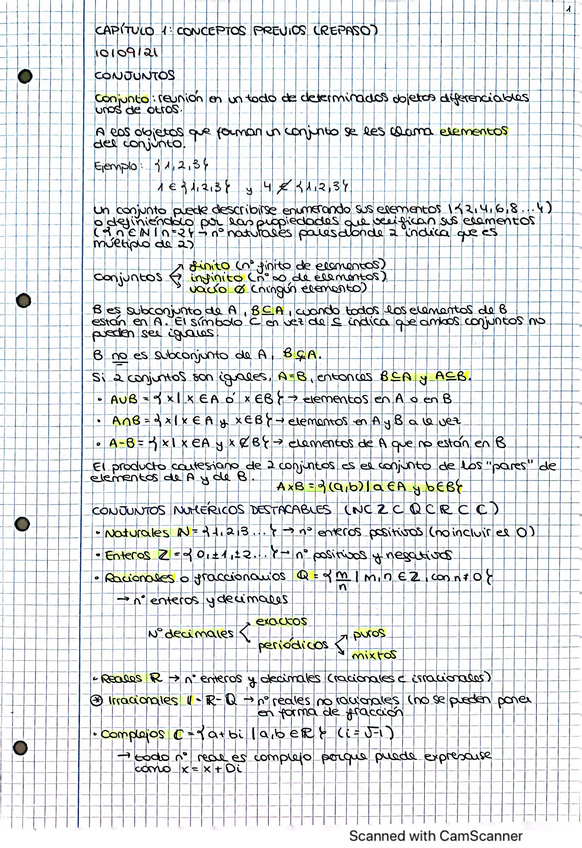 1
CAPÍTULO 1: CONCEPTOS PREVIOS (REPASO)
10/09/21
CONJUNTOS
Conjunto: reunión en un todo de determinados objetos diferenciables
unos de otros.
A los objetos que forman un conjunto se les llama elementos
del conjunto.
Ejemplo: {1,2,3}
1 ∈ {1,2,3} y 4 ∉ {1,2,3}
Un conjunto puede describirse enumerando sus elementos ({2,4,6,8...})
o definiéndolo por las propiedades que verifican sus elementos
({n ∈ N | n=2} → nº naturales pares donde 2 indica que es
múltiplo de 2)
Conjuntos finito (nº finito de elementos)
infinito (nº ∞ de elementos)
vacío ∅ (ningún elemento)
B es subconjunto de A, B⊆A, cuando todos los elementos de B
están en A. El símbolo ⊂ en vez de ⊆ indica que ambos conjuntos no
pueden ser iguales.
B no es subconjunto de A, B⊈A.
Si 2 conjuntos son iguales, A=B, entonces B⊆A y A⊆B.
• A∪B = {x | x ∈A ó x ∈B} → elementos en A o en B
• A∩B = {x | x ∈ A y x∈B} → elementos en A y B a la vez
• A-B = {x | x ∈A y x ∉ B} → elementos de A que no están en B
El producto cartesiano de 2 conjuntos es el conjunto de los "pares" de
elementos de A y de B.
A×B = {(a,b) | a ∈A y b∈B}
CONJUNTOS NUMÉRICOS DESTACABLES (N⊂Z⊂Q⊂R⊂C)
• Naturales N = {1,2,3...} → nº enteros positivos (no incluir el 0)
• Enteros Z = {0,±1,±2...} → nº positivos y negativos
• Racionales o fraccionarios Q = {m/n | m,n ∈ Z, con n≠0}
→ nº enteros y decimales
Nº decimales exactos
periódicos puros
mixtos
• Reales R → nº enteros y decimales (racionales e irracionales)
⊛ Irracionales I = R-Q → nº reales no racionales (no se pueden poner
en forma de fracción
• Complejos C = {a+bi | a,b ∈ R} (i=√-1)
→ todo nº real es complejo porque puede expresarse
como x = x + 0i
Scanned with CamScanner